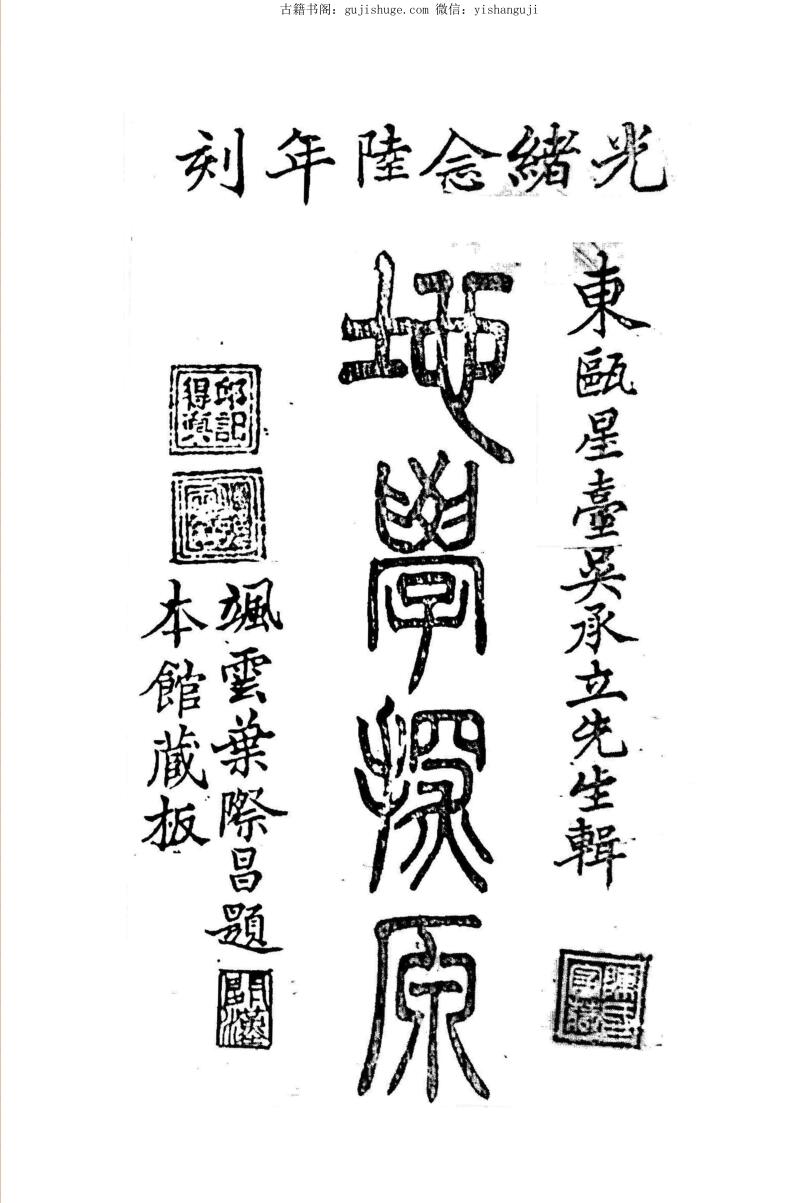 古籍书阁：gujishuge.com 微信：yishanguji
光緒念陸年刻
東甌星臺吳承立先生輯
地學探原
颯雲葉際昌題
本館藏板
邱記
得真